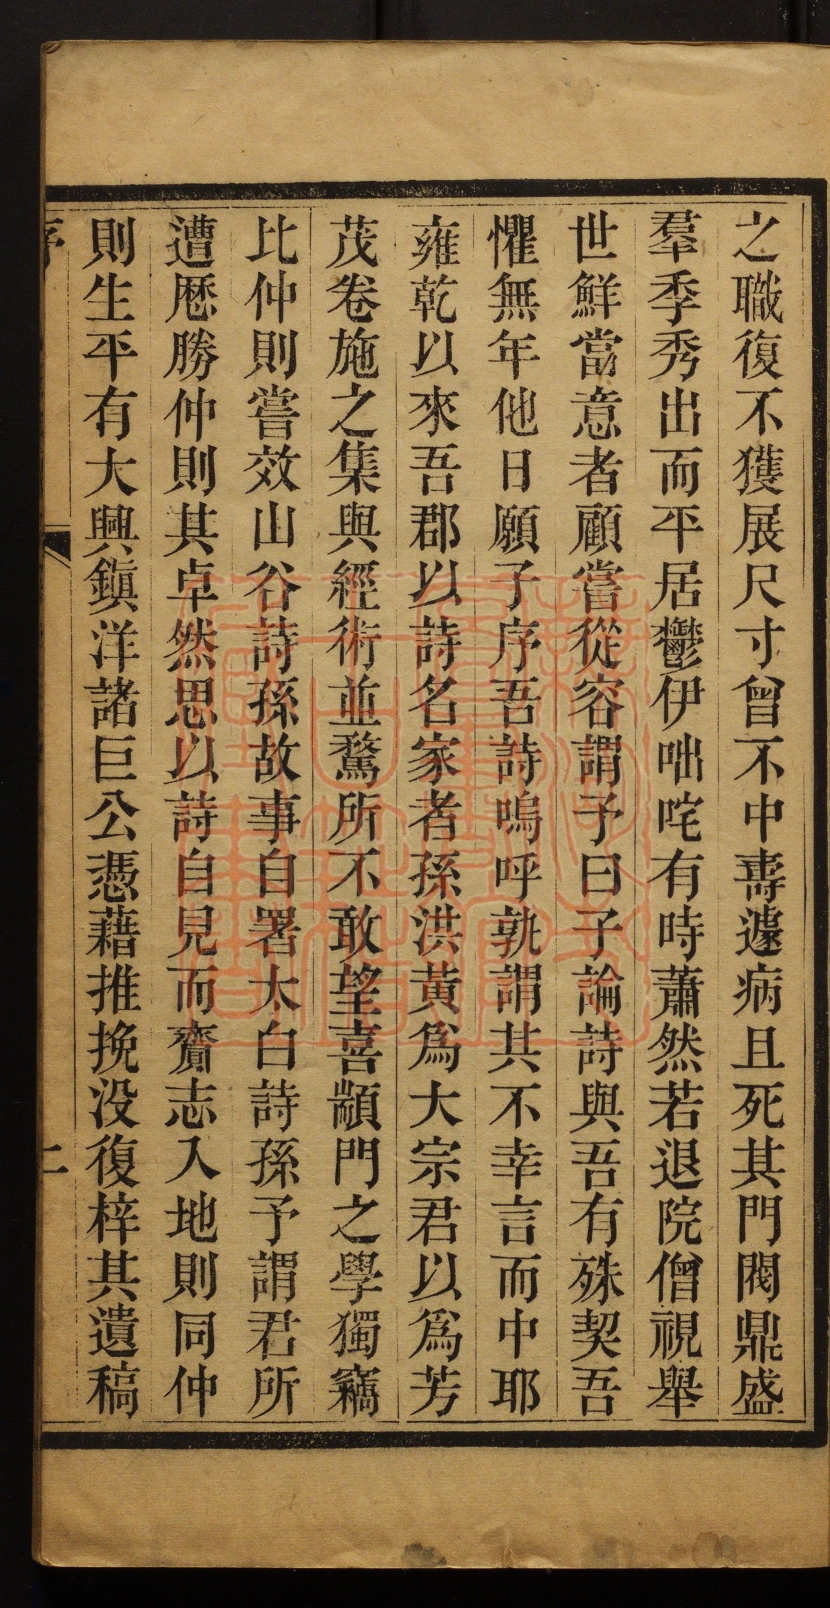 之職復不獲展尺寸曾不中壽遽病且死其門閥鼎盛
羣季秀出而平居鬱伊咄咤有時蕭然若退院僧視舉
世鮮當意者顧嘗從容謂予曰子論詩與吾有殊契吾
懼無年他日願子序吾詩嗚呼孰謂其不幸言而中耶
雍乾以來吾郡以詩名家者孫洪黃爲大宗君以爲芳
茂卷施之集與經術並騖所不敢望喜顓門之學獨竊
比仲則嘗效山谷詩孫故事自署太白詩孫予謂君所
遭歷勝仲則其卓然思以詩自見而齎志入地則同仲
則生平有大興鎮洋諸巨公憑藉推挽没復梓其遺稿
序
二